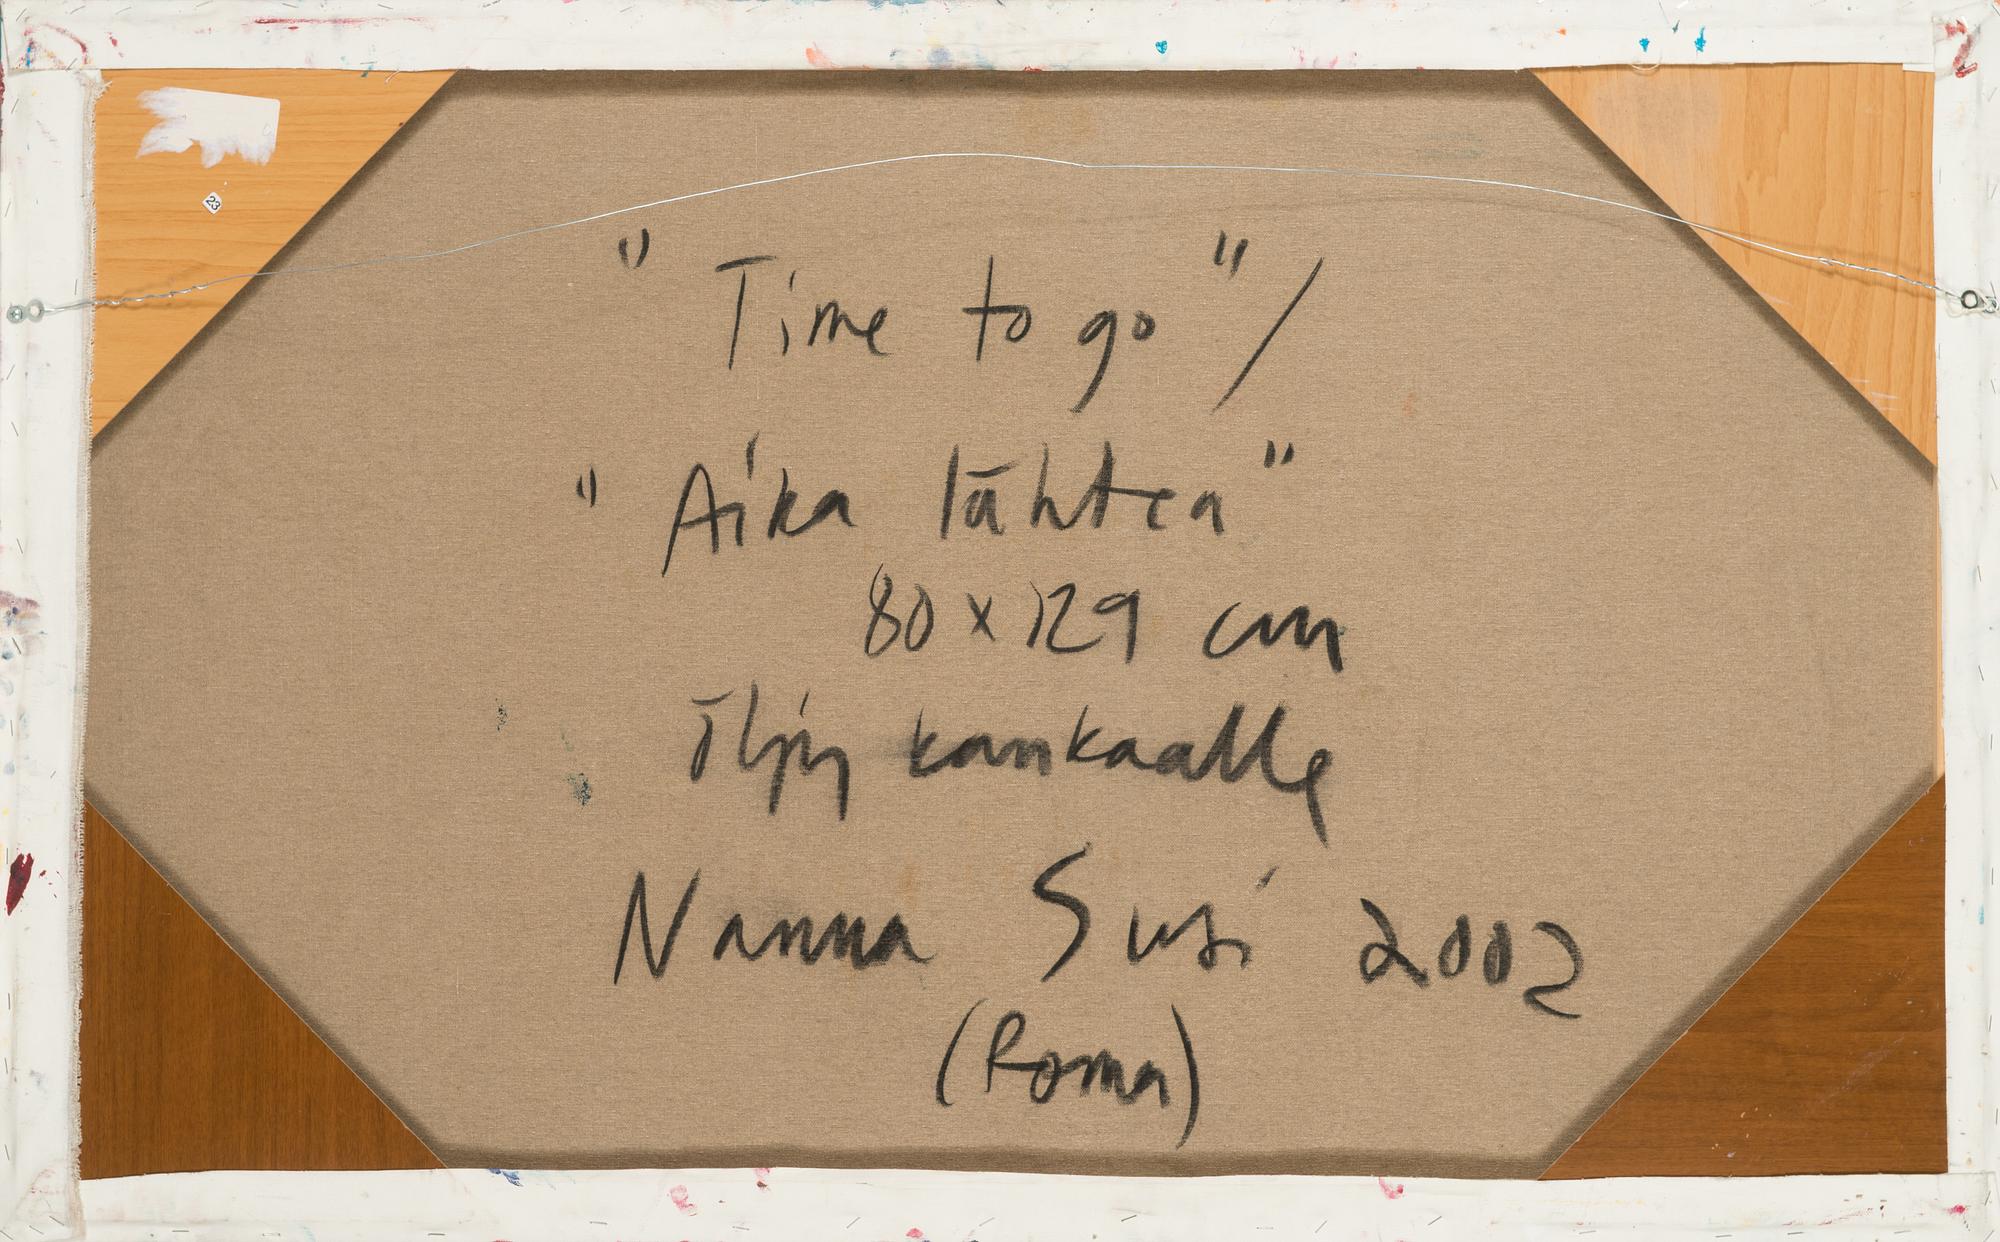 23
"Time to go"/
"Aika lähtea"
80 x 129 cm
öljy kankaalle
Nanna Susi 2002
(Roma)